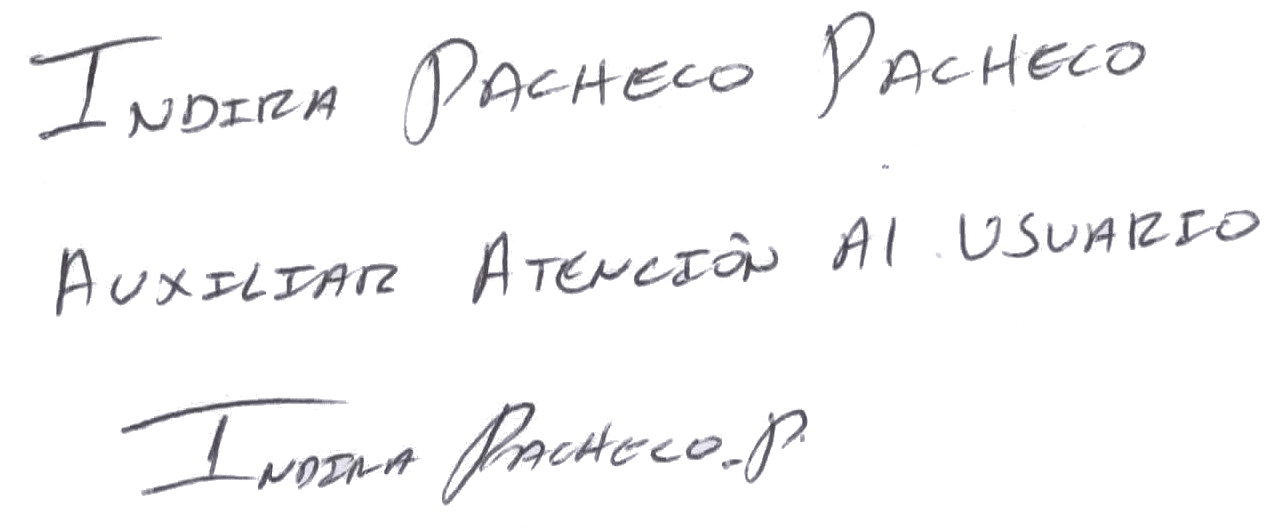 INDIRA PACHECO PACHECO
AUXILIAR ATENCIÓN Al USUARIO
INDIRA PACHECO.P.